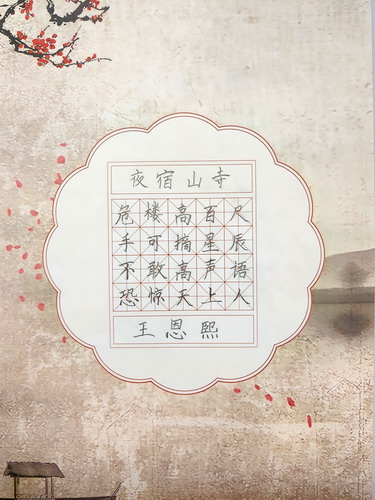 夜宿山寺
危楼高百尺
手可摘星辰
不敢高声语
恐惊天上人
王恩熙